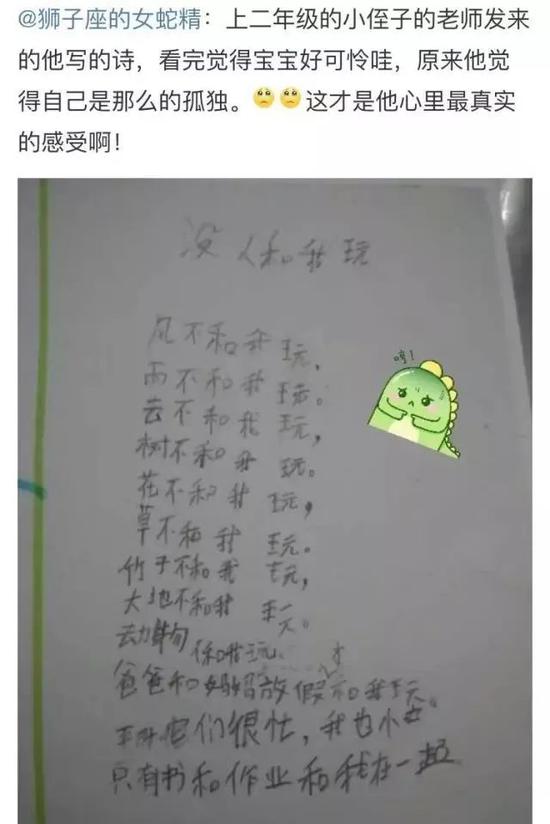 @狮子座的女蛇精：上二年级的小侄子的老师发来
的他写的诗，看完觉得宝宝好可怜哇，原来他觉
得自己是那么的孤独。🥺🥺这才是他心里最真实
的感受啊！
没人和我玩
哼！
风不和我玩，
雨不和我玩。
云不和我玩，
树不和我玩。
花不和我玩，
草不和我玩。
竹子不和我玩，
大地不和我玩。
动物 和我玩
爸爸和妈妈放假才和我玩。
他们很忙，我也
只有书和作业和我在一起